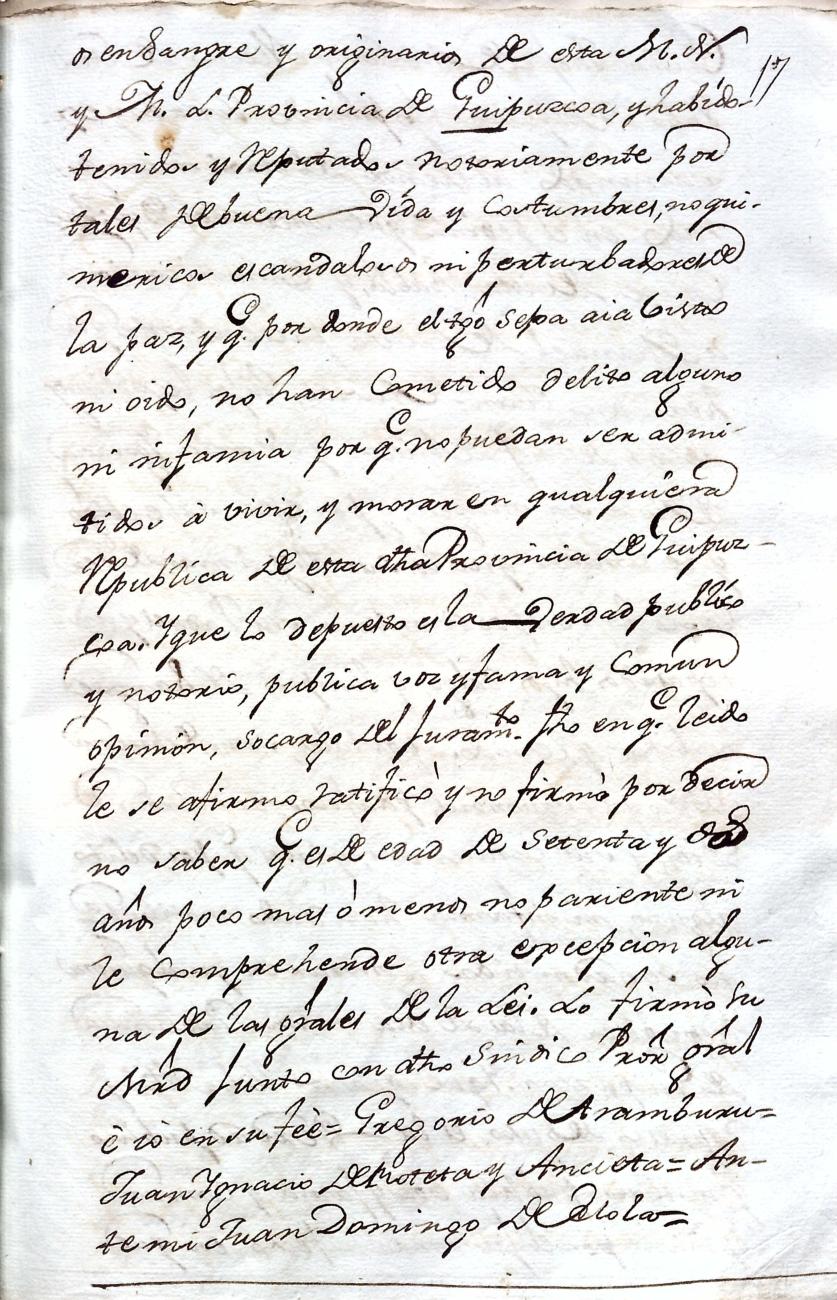 os en Sangre y originarios de esta M. N.
17
y M. L. Provincia de Guipuzcoa, y habidos
tenidos y Reputados notoriamente por
tales de buena Vida y Costumbres, no qui-
mericos escandalosos ni perturbadores de
la paz, y q.e por donde el tgô sepa aia visto
ni oido, no han Cometido delito alguno
ni infamia por q.e no puedan ser admi-
tidos à vivir, y morar en qualquiera
Republica de esta dha Provincia de Guipuz-
coa. Y que lo depuesto es la Verdad publico
y notorio, publica voz y fama y Comun
opinion, socargo del Juram.to fho en q.e leido
le se afirmo ratificò y no firmò por decir
no saber q.e es de edad de Setenta y dos
años poco mas ò menos no pariente ni
le Comprehende otra excepcion algu-
na de las grâles de la Lei. Lo firmò Su
Mrd Junto con dho Sindico Prôr grâl
è io en su feè= Gregorio de Aramburu=
Juan Ygnacio de Roteta y Ancieta= An-
te mi Juan Domingo de